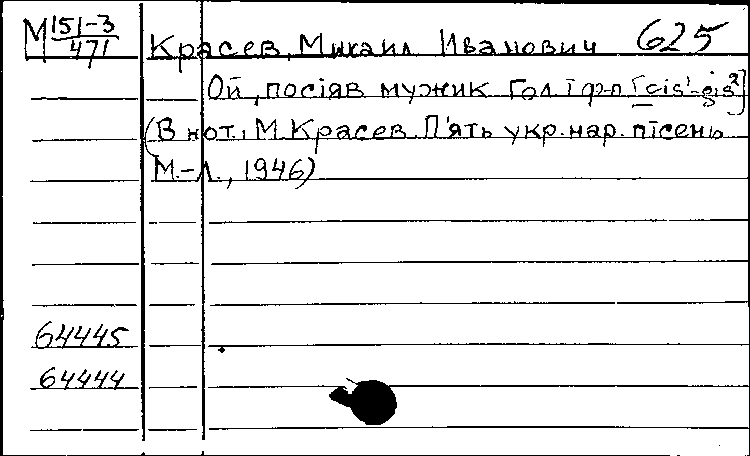 М 151-3/471 Красев, Михаил Иванович 625
Ой, посіяв мужик Гол і ф-п [cis¹-gis²]
(В нот: М. Красев. П'ять укр. нар. пісень
М.-Л., 1946)
64445
64444